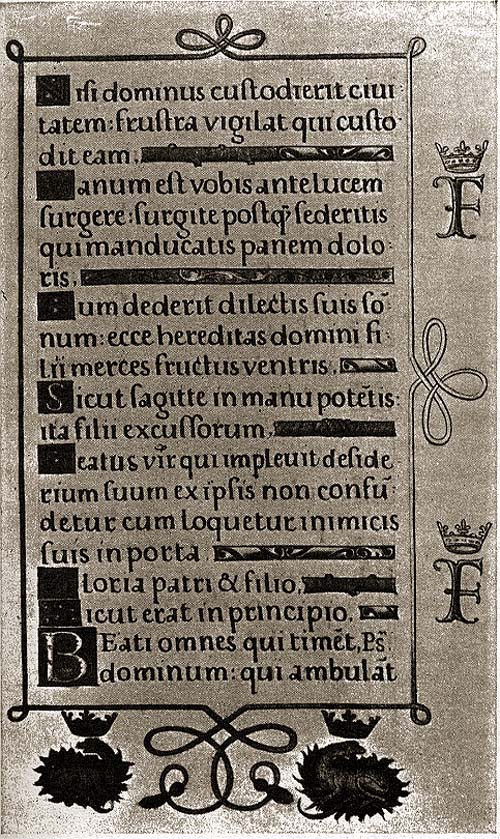 Nisi dominus cuſtodierit ciui
tatem: fruſtra vigilat qui cuſto
dit eam.
Vanum eſt vobis ante lucem
ſurgere: ſurgite poſtꝙ ſederitis
qui manducatis panem dolo
ris.
Cum dederit dilectis ſuis ſo᷃
num: ecce hereditas domini fi
lii merces fructus ventris.
Sicut ſagitte in manu potẽtis:
ita filii excuſſorum.
Beatus vir qui impleuit deſide
rium ſuum ex ipſis non confũ
detur cum loquetur inimicis
ſuis in porta
Gloria patri & filio.
Sicut erat in principio.
BEati omnes qui timẽt, Ps̃.
dominum: qui ambulãt
F
F